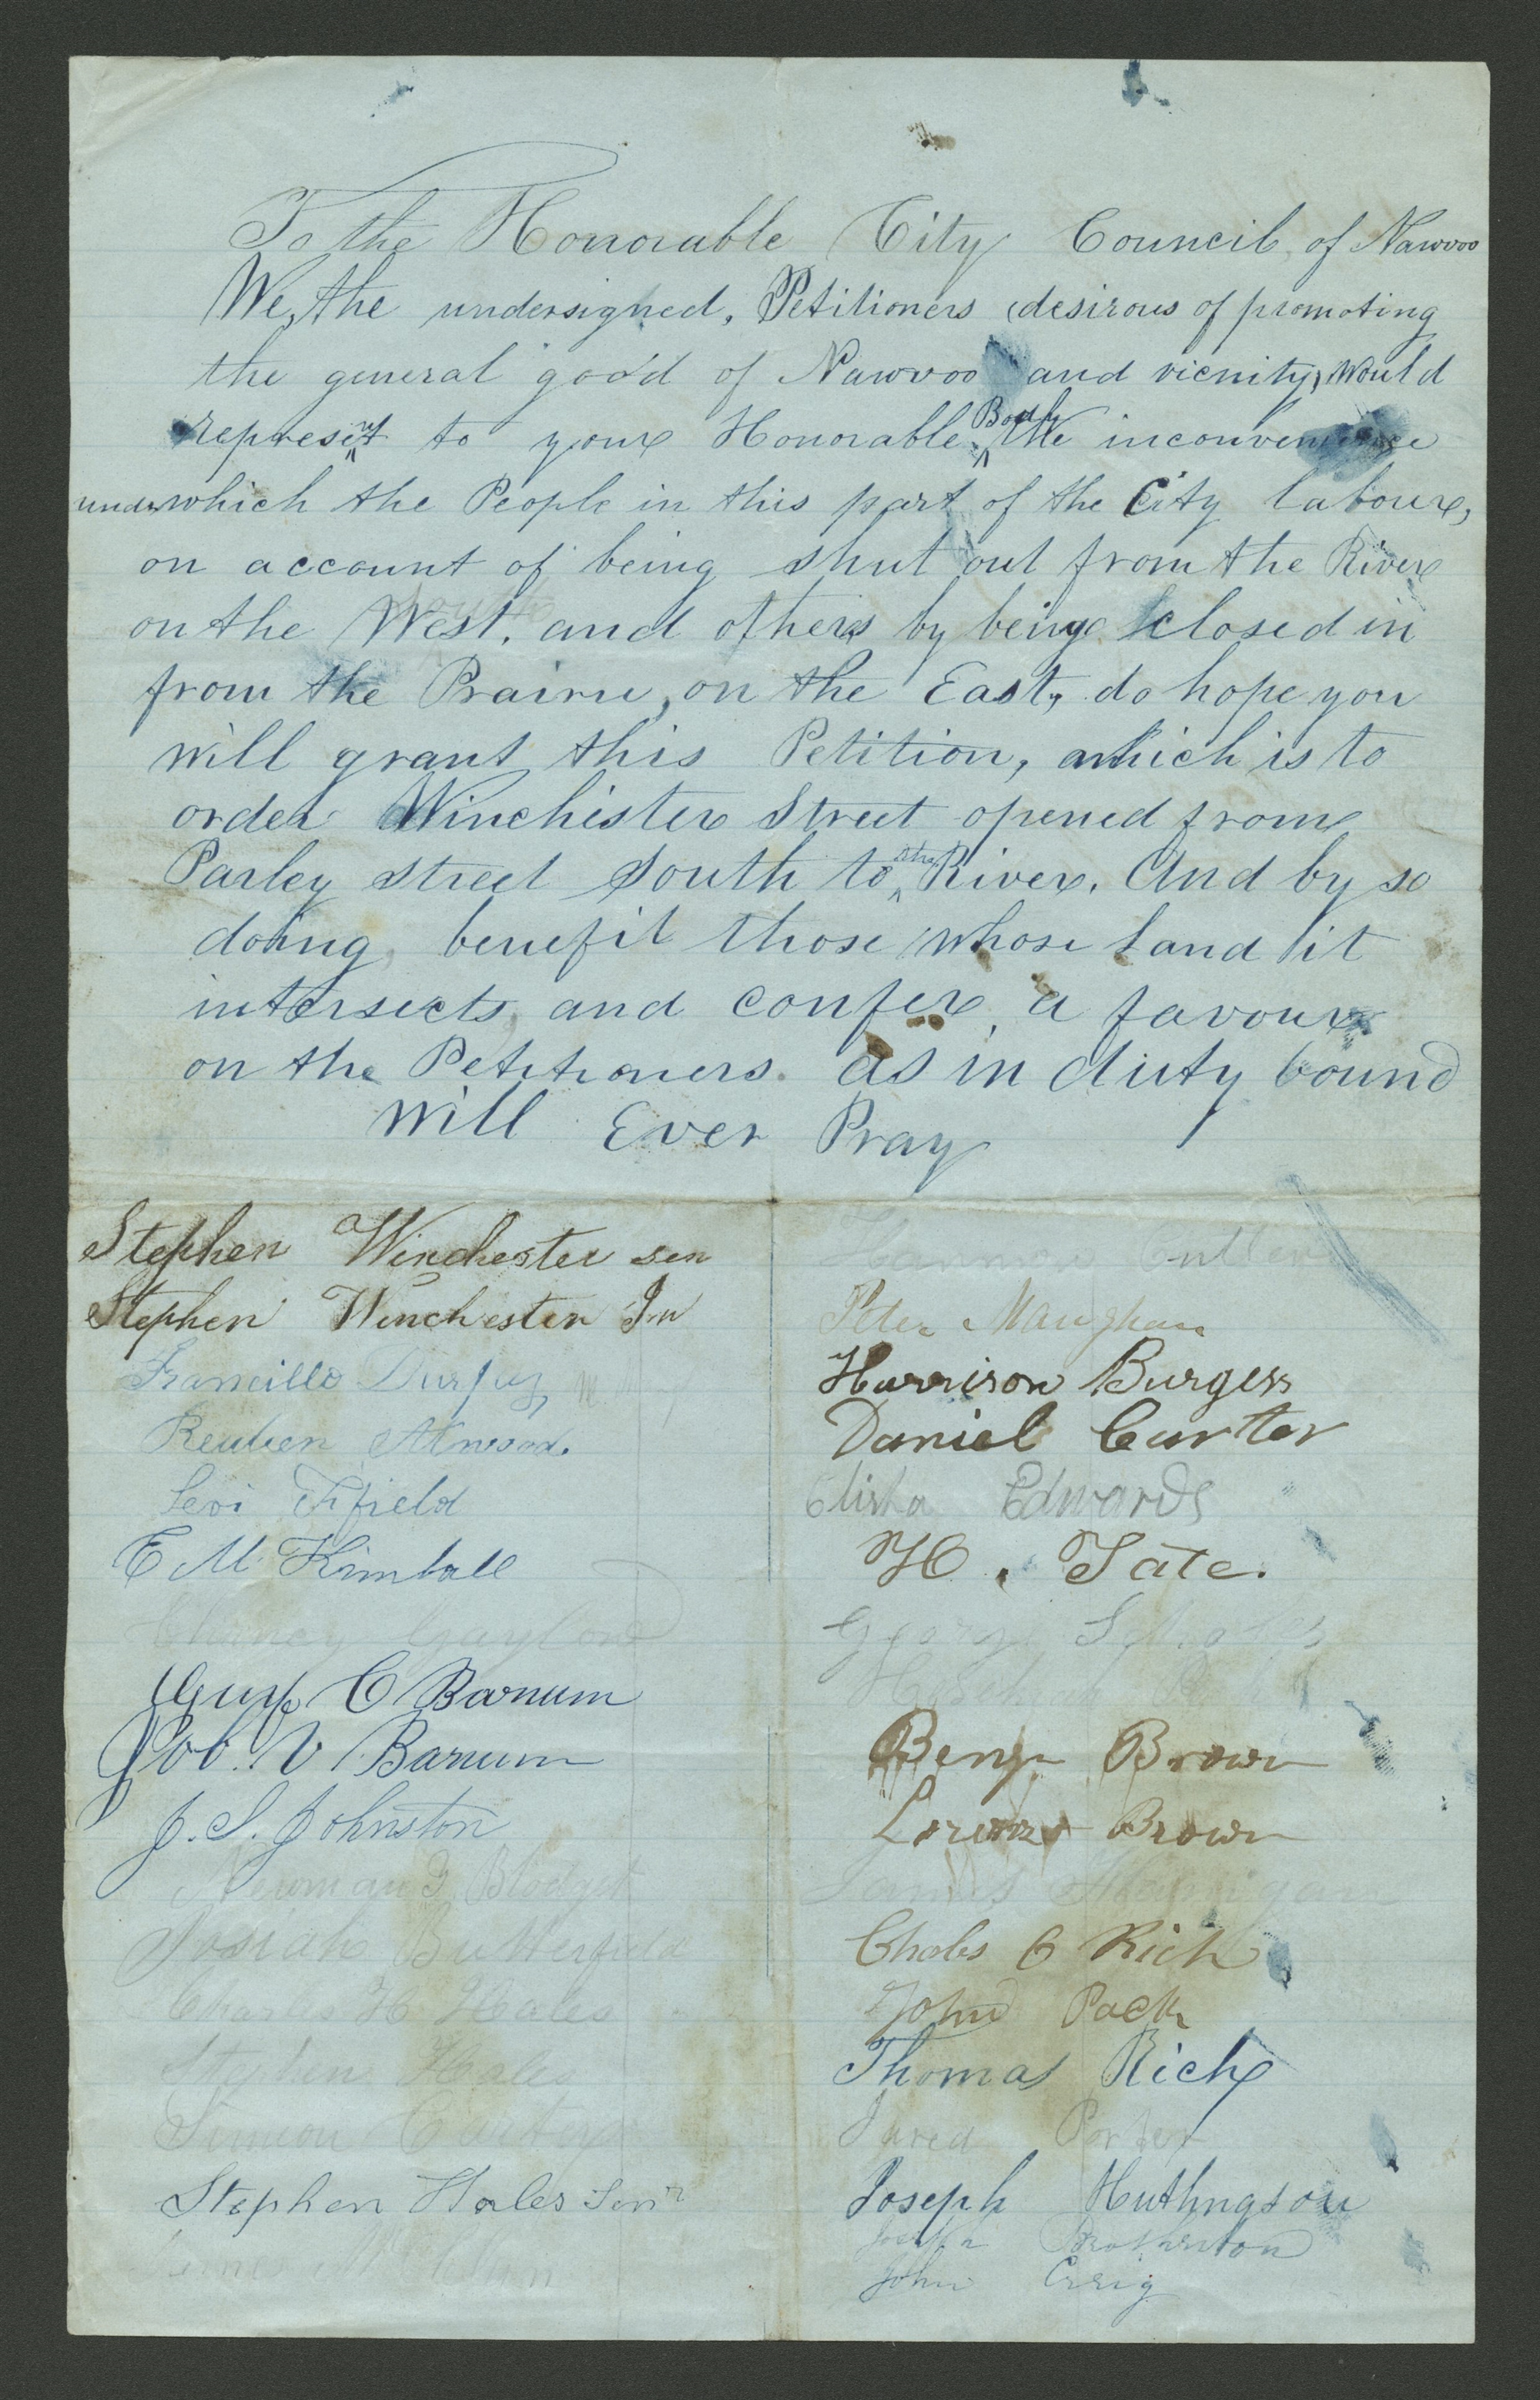 To the Honorable City Council, of Nawvoo
We, the undersigned, Petitioners desirous of promoting
the general good of Nawvoo and vicnity, would
represent to your Honorable Body the inconvenience
under which the People in this part of the City labour,
on account of being shut out from the River
on the West, and others by being closed in
from the Prairie, on the East, do hope you
will grant this Petition, which is to
order Winchister Street opened from
Parley street South to the River. And by so
doing, benefit those whose Land it
intersects, and confer a favour
on the Petitioners. as in duty bound
will Ever Pray
Stephen Winchester sen
Stephen Winchester Jn
Francillo Durfey
Reuben Atwood.
Levi Fifield
E M Kimball
Chancy Gaylord
C Barnum
Job. V Barnum
J. S. Johnston
Newman G Blodget
Josiah Butterfield
Charles H Hales
Stephen Hales
Simeon Carter
Stephen Hales Senr
Harmon Cutler
Peter Maughan
Harrison Burgess
Daniel Carter
Elisha Edwards
H. Tate.
George Scholes
Benjn Brown
Lorenzo Brown
James
Chales C Rich
John Pack
Thomas Rich
Jared Porter
Joseph Huthngson
Brotherton
John Crrig